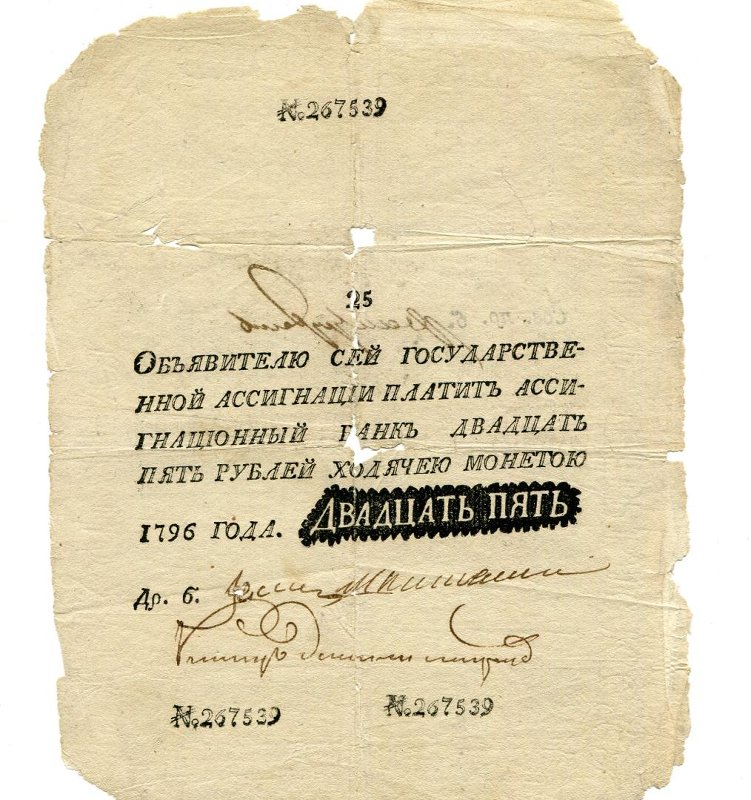 №267539
25
ОБЪЯВИТЕЛЮ СЕЙ ГОСУДАРСТВЕ-
ННОЙ АССИГНАЦІИ ПЛАТИТЪ АССИ-
ГНАЦІОННЫЙ БАНКЪ ДВАДЦАТЬ
ПЯТЬ РУБЛЕЙ ХОДЯЧЕЮ МОНЕТОЮ
1796 ГОДА. ДВАДЦАТЬ ПЯТЬ
Др. б.
№267539 №267539